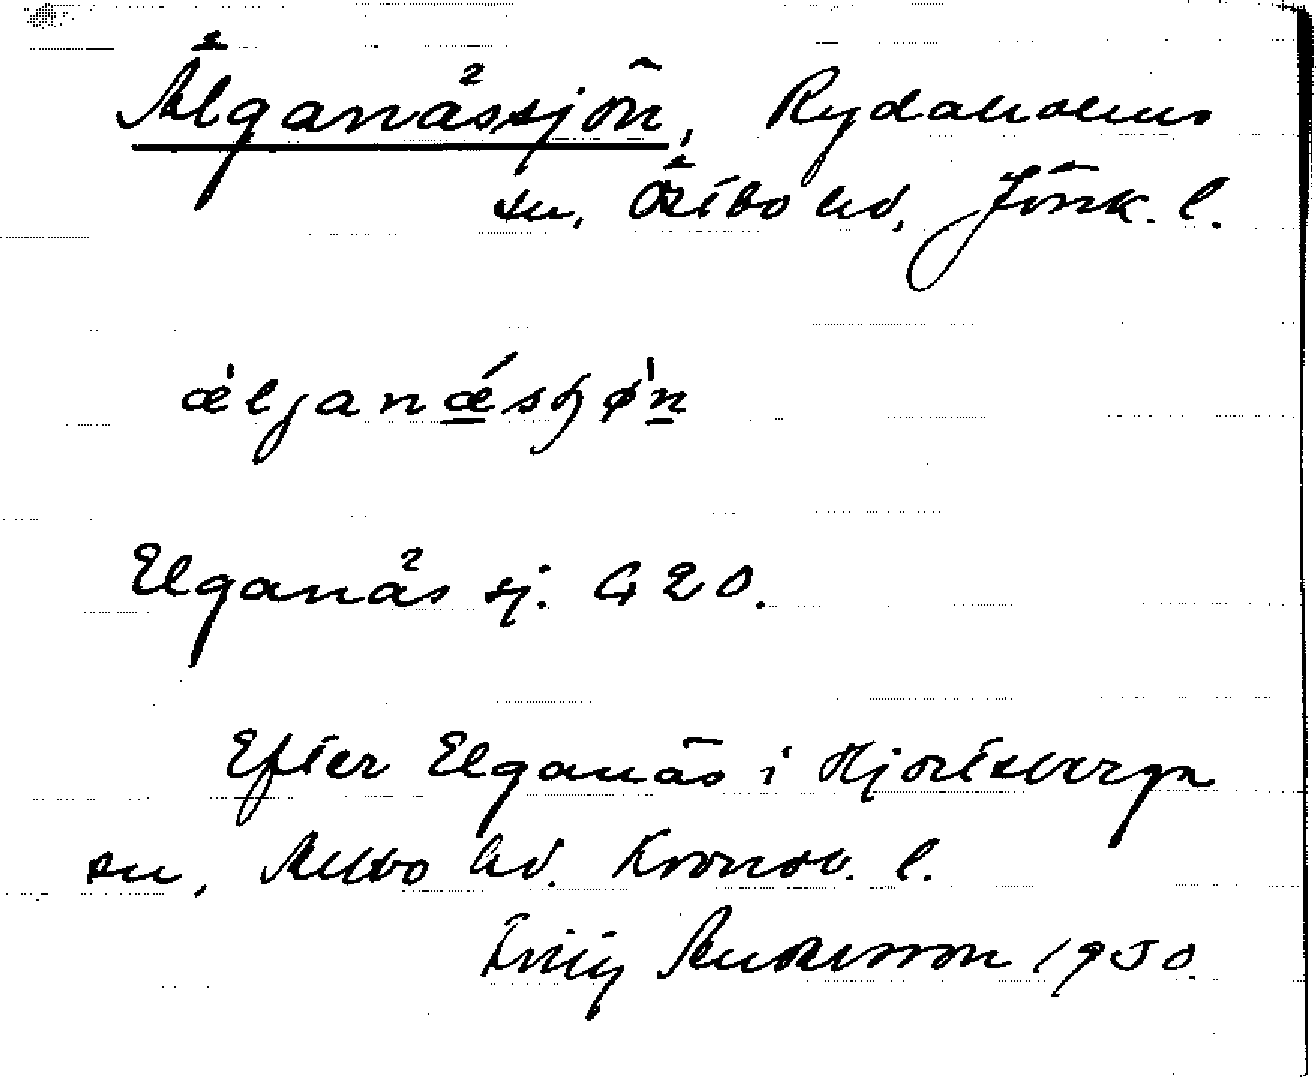 Älganässjön, Rydaholms
sn, Östbo hd, Jönk. l.
æ̀ljanǽsʃǿn
Elganäs sj. G 20.
Efter Elganäs i Hjortsberga
sn, Allbo hd. Kronob. l.
Andersson 1950